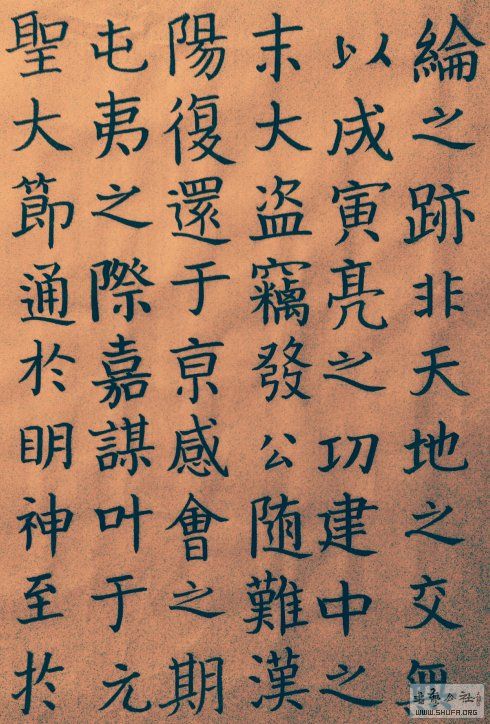 綸之跡非天地之交無
以成寅亮之功建中之
末大盗竊發公随難漢
陽復還于京感會之期
屯夷之際嘉謀叶于元
聖大節通於明神至於
WWW.SHUFA.ORG